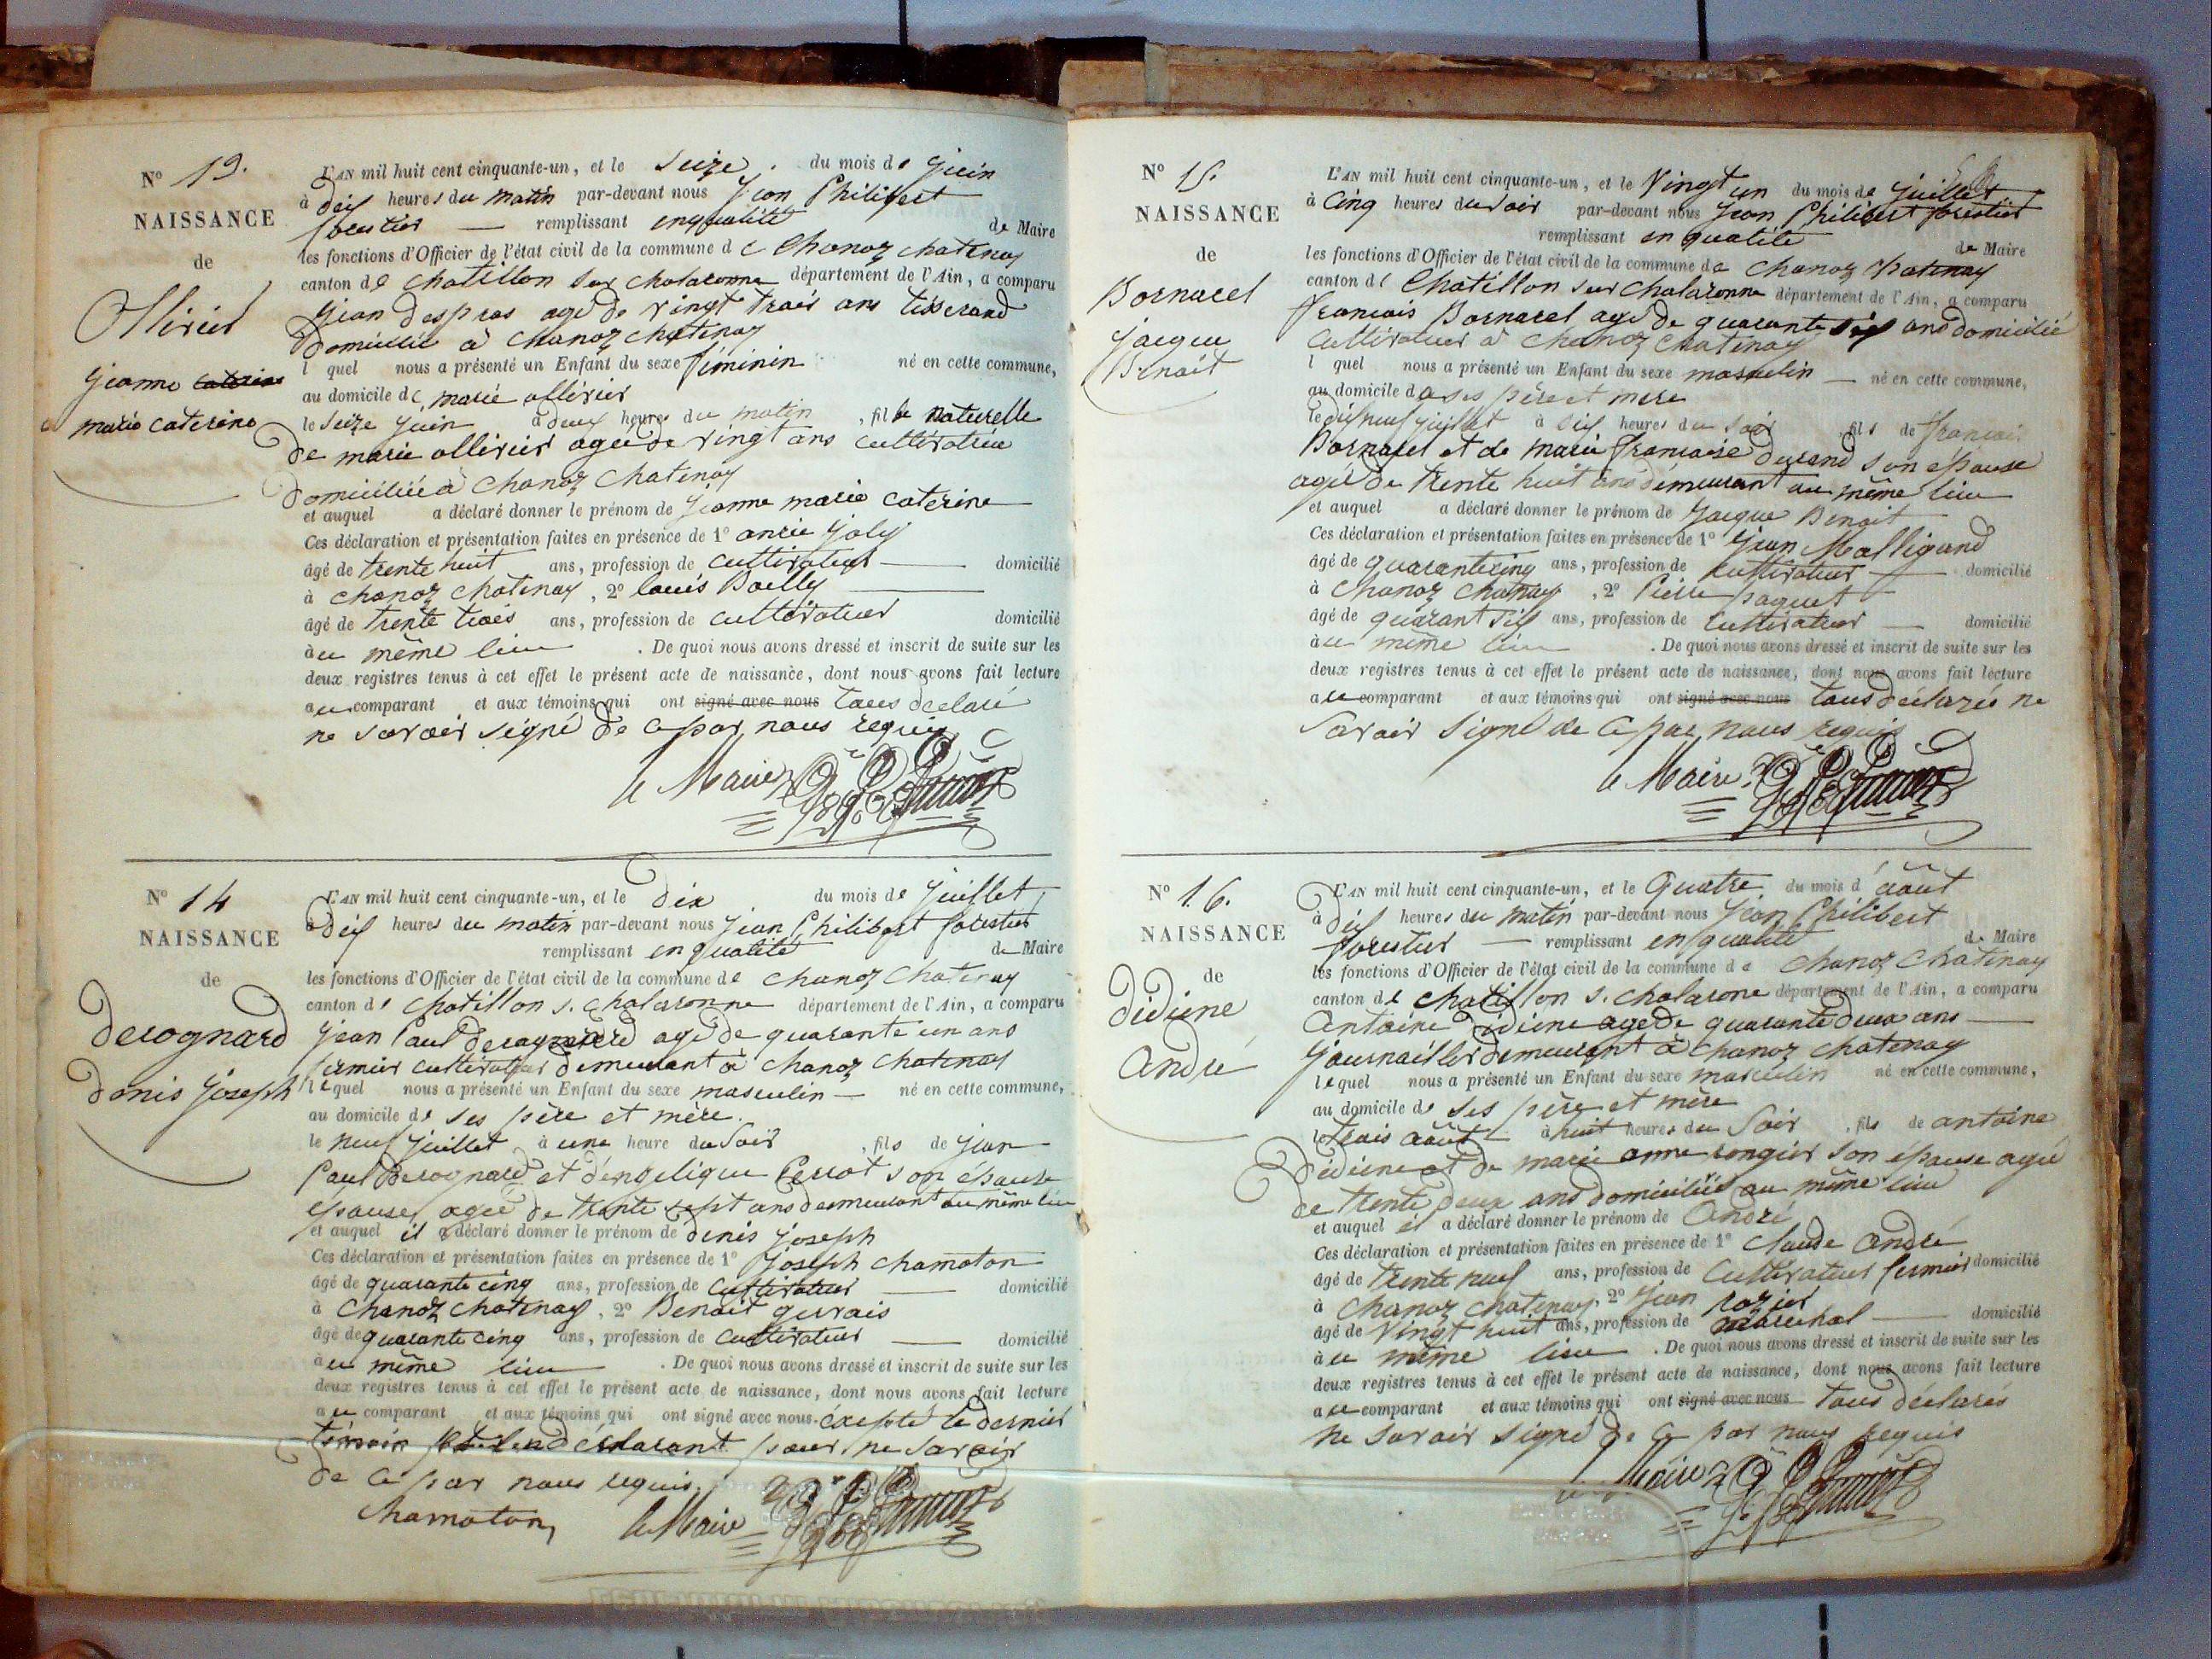 Nº 13.
NAISSANCE
de
Ollivier
Jeanne caterine
marie caterine
L'AN mil huit cent cinquante-un, et le seize. du mois de Juin
à dix heures du matin par-devant nous Jean Philibert
forestier — remplissant en qualité de Maire
les fonctions d'Officier de l'état civil de la commune de Chanoz chatenay
canton de chatillon sur chalaronne département de l'Ain, a comparu
Jean despras agé de vingt trois ans tisserand
domicilié à chanoz chatenay
l quel nous a présenté un Enfant du sexe féminin né en cette commune,
au domicile de marie ollivier
le seize Juin à deux heures du matin, fille naturelle
de marie ollivier agée de vingt ans cultivatrice
domiciliée à chanoz chatenay
et auquel a déclaré donner le prénom de Jeanne marie caterine
Ces déclaration et présentation faites en présence de 1º Joly
âgé de trente huit ans, profession de cultivateur — domicilié
à chanoz chatenay, 2º louis Bailly —
âgé de trente trois ans, profession de cultivateur domicilié
à u même lieu. De quoi nous avons dressé et inscrit de suite sur les
deux registres tenus à cet effet le présent acte de naissance, dont nous avons fait lecture
au comparant et aux témoins qui ont signé avec nous tous declaré
ne savoir signé de ce par nous requis
le Maire
Nº 14
NAISSANCE
de
derognard
denis Joseph
L'AN mil huit cent cinquante-un, et le dix du mois de Juillet
à dix heures du matin par-devant nous Jean Philibert forestier
remplissant en qualité de Maire
les fonctions d'Officier de l'état civil de la commune de chanoz chatenay
canton de chatillon s. chalaronne département de l'Ain, a comparu
Jean Paul derognard agé de quarante un ans
fermier cultivateur demeurant à chanoz chatenay
lequel nous a présenté un Enfant du sexe masculin — né en cette commune,
au domicile de ses père et mère.
le neuf Juillet à une heure du soir, fils de Jean
Paul derognard et d'engelique Perrot son épouse
épouse agée de trente sept ans demeurant au même lieu
et auquel il a déclaré donner le prénom de denis Joseph
Ces déclaration et présentation faites en présence de 1º Joseph chamoton
âgé de quarante cinq ans, profession de cultivateur — domicilié
à chanoz chatenay, 2º Benoit gervais
âgé de quarante cinq ans, profession de cultivateur — domicilié
à u même lieu. De quoi nous avons dressé et inscrit de suite sur les
deux registres tenus à cet effet le présent acte de naissance, dont nous avons fait lecture
au comparant et aux témoins qui ont signé avec nous. éxcepté le dernier
témoin déclarant pour ne savoir
de ce par nous requis.
Chamoton, le Maire
Nº 15.
NAISSANCE
de
Bornarel
Jacque
Benoit
L'AN mil huit cent cinquante-un, et le Vingt un du mois de Juillet
à Cinq heures du soir par-devant nous Jean Philibert forestier
remplissant en qualité de Maire
les fonctions d'Officier de l'état civil de la commune de chanoz chatenay
canton de Chatillon sur chalaronne département de l'Ain, a comparu
francois Bornarel agé de quarante six ans domicilié
Cultivateur à chanoz chatenay
l quel nous a présenté un Enfant du sexe masculin — né en cette commune,
au domicile de ses père et mere
le dix neuf juillet à six heures du soir fils de francois
Bornarel et de marie francoise durand son épouse
agée de trente huit ans demeurant au même lieu
et auquel a déclaré donner le prénom de Jacque Benoit
Ces déclaration et présentation faites en présence de 1º Jean Malligand
âgé de quarante cinq ans, profession de cultivateur — domicilié
à Chanoz chatenay, 2º Pierre paquet
âgé de quarant six ans, profession de cultivateur — domicilié
à u même lieu. De quoi nous avons dressé et inscrit de suite sur les
deux registres tenus à cet effet le présent acte de naissance, dont nous avons fait lecture
au comparant et aux témoins qui ont signé avec nous tous déclarés ne
savoir signé de ce par nous requis
le Maire
Nº 16.
NAISSANCE
de
didiene
André
L'AN mil huit cent cinquante-un, et le Quatre du mois d'août
à dix heures du matin par-devant nous Jean Philibert
forestier — remplissant en qualité de Maire
les fonctions d'Officier de l'état civil de la commune de chanoz chatenay
canton de chatillon s. chalarone département de l'Ain, a comparu
Antoine didiene agé de quarante deux ans —
Journaillier demeurant à chanoz chatenay
lequel nous a présenté un Enfant du sexe masculin né en cette commune,
au domicile de ses père et mère
le trois août à huit heures du soir. fils de antoine
didiene et de marie anne rongier son épouse agée
de trente deux ans domiciliés au même lieu
et auquel il a déclaré donner le prénom de André
Ces déclaration et présentation faites en présence de 1º claude André
âgé de trente neuf ans, profession de cultivateur fermier domicilié
à chanoz chatenay, 2º Jean rozier
âgé de Vingt huit ans, profession de marechal — domicilié
à u même lieu. De quoi nous avons dressé et inscrit de suite sur les
deux registres tenus à cet effet le présent acte de naissance, dont nous avons fait lecture
au comparant et aux témoins qui ont signé avec nous tous déclarés
ne savoir signé de ce par nous requis
le Maire